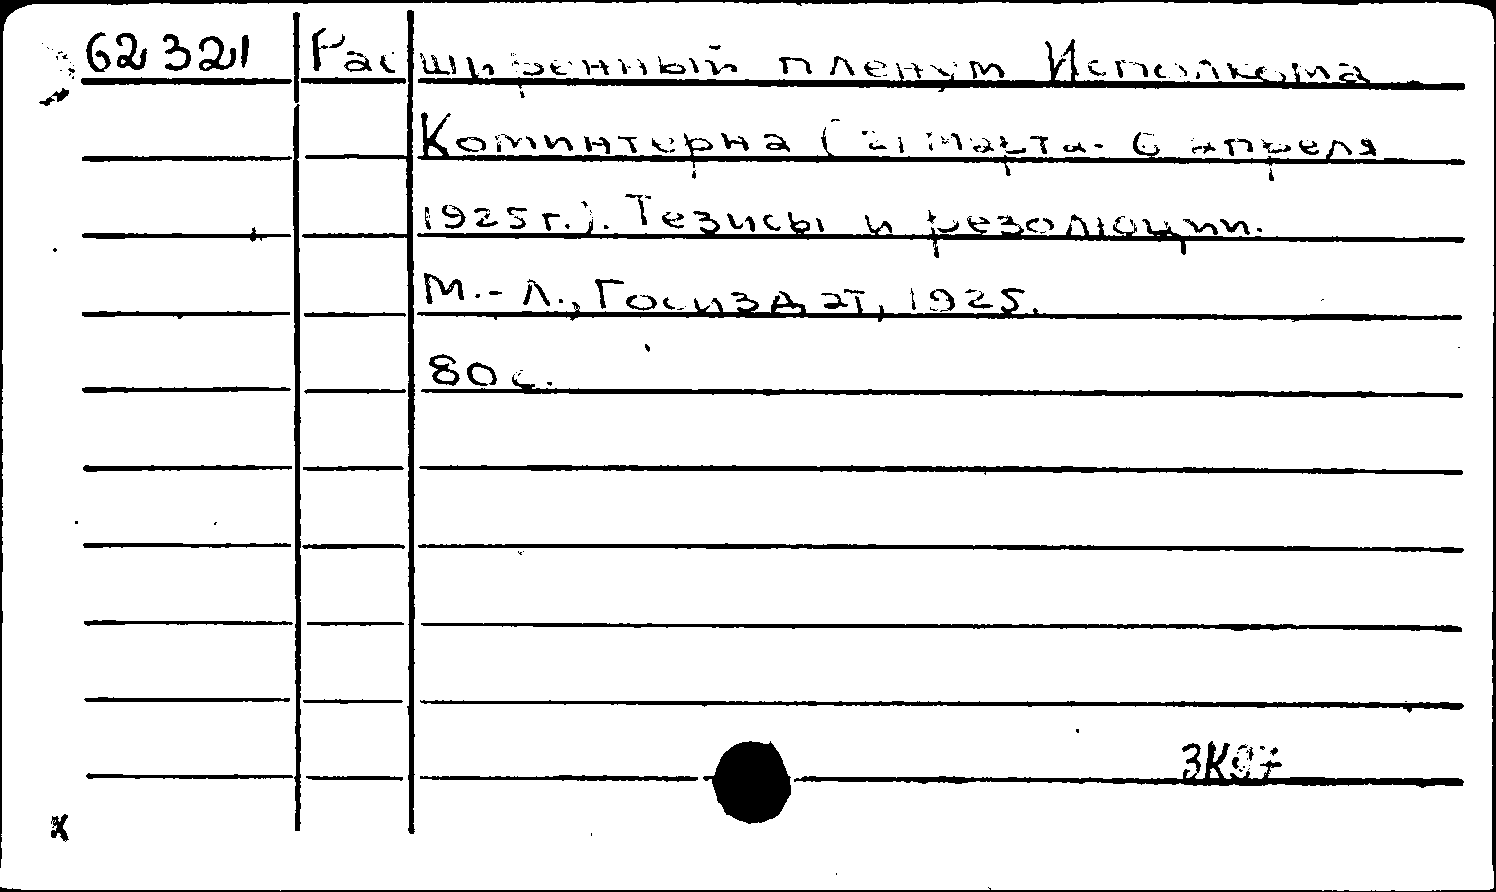 62321 Расширенный пленум Исполкома
Коминтерна (21 марта - 6 апреля
1925г.). Тезисы и резолюции.
М.-Л., Госиздат, 1925.
80 с.
3К97
х